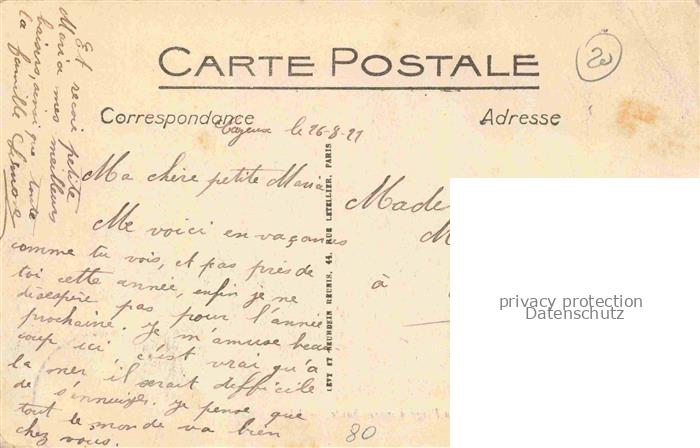 CARTE POSTALE
20
Correspondance
Adresse
Cayeux le 26-8-21
Ma chère petite Maria
Me voici en vacances
comme tu vois, et pas près de
toi cette année, enfin je ne
désespère pas pour l'année
prochaine. Je m'amuse beau-
coup ici, c'est vrai qu'à
la mer il serait difficile
de s'ennuyer. Je pense que
tout le monde va bien
chez vous.
Et reçoi petite
Maria mes meilleurs
baisers, ainsi que toute
la famille
LÉVY ET NEURDEIN RÉUNIS, 44, RUE LETELLIER, PARIS
Made
M
à
privacy protection
Datenschutz
80